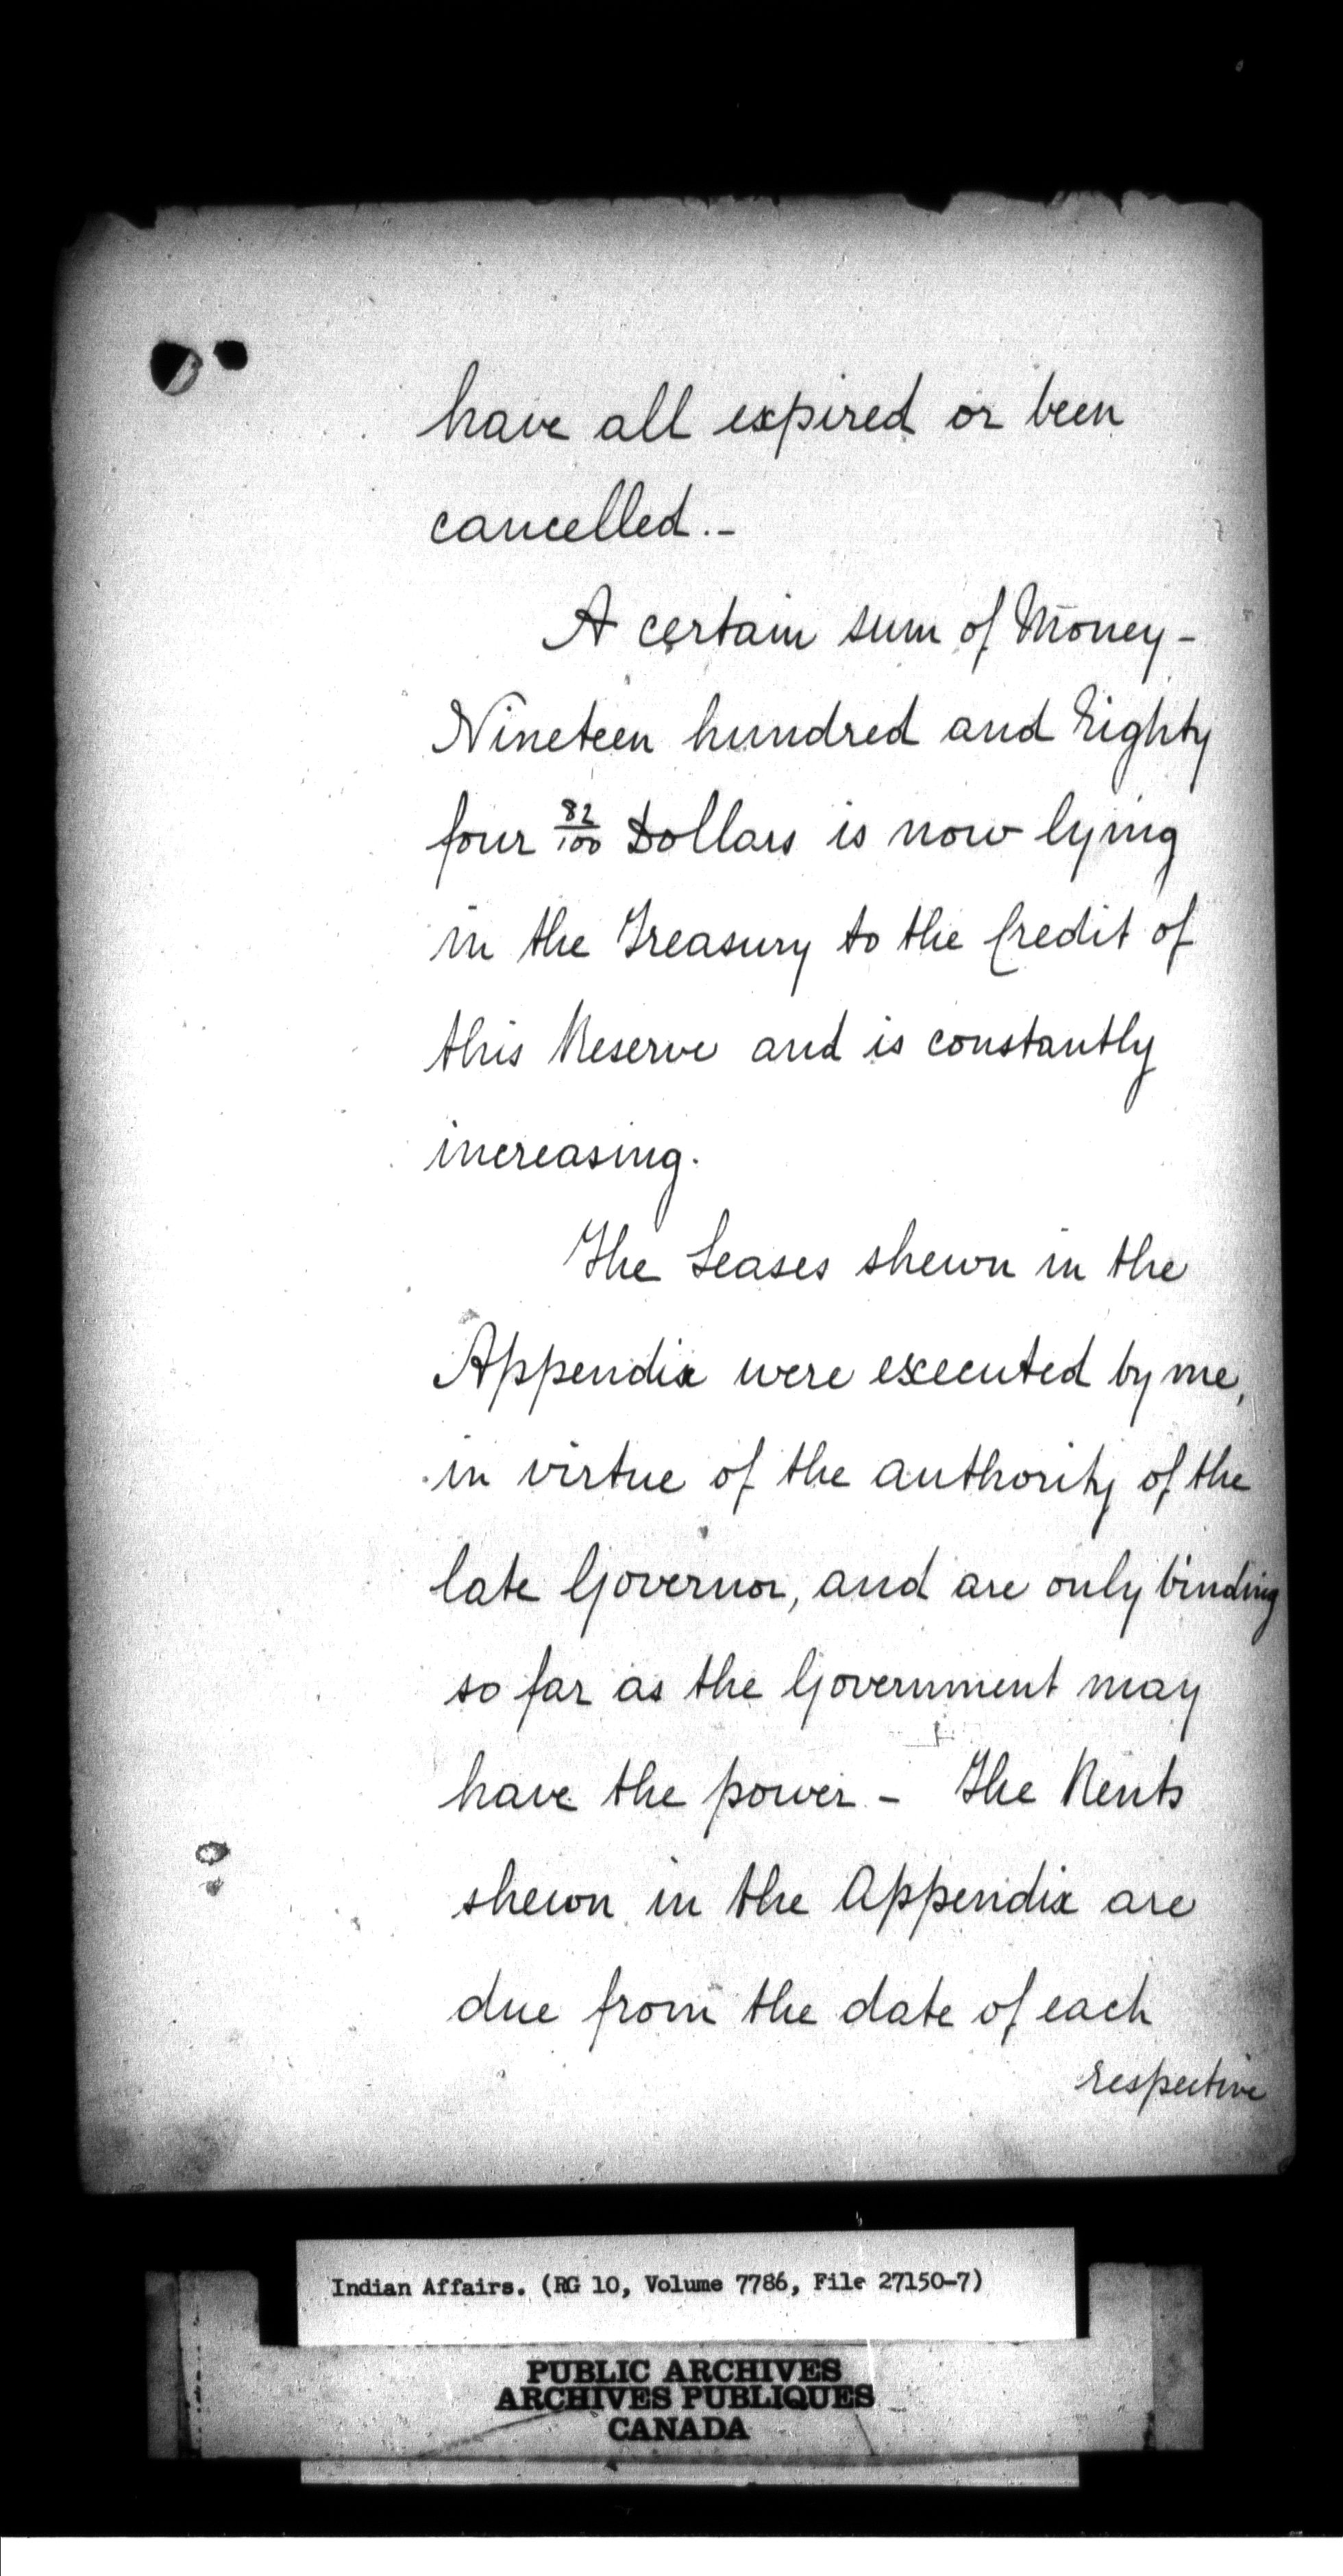 have all expired or been
cancelled.-
A certain sum of Money -
Nineteen hundred and Eighty
four 82/100 Dollars is now lying
in the Treasury to the Credit of
this Reserve and is constantly
increasing.
The Leases shewn in the
Appendix were executed by me,
in virtue of the authority of the
late Governor, and are only binding
so far as the Government may
have the power - The Rents
shewn in the Appendix are
due from the date of each
respective
Indian Affairs. (RG 10, Volume 7786, File 27150-7)
PUBLIC ARCHIVES
ARCHIVES PUBLIQUES
CANADA